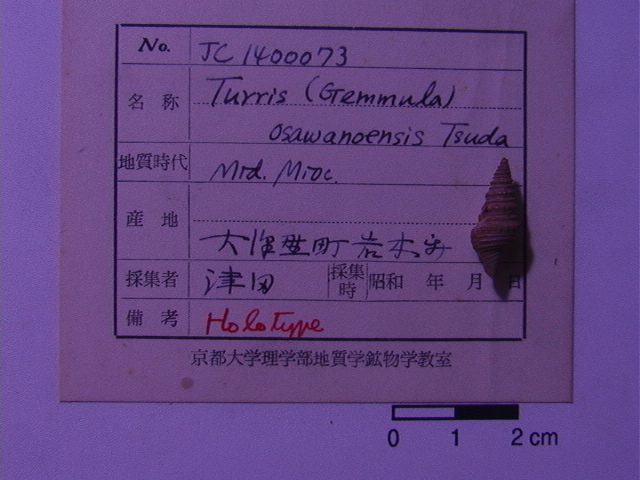 No. JC1400073
名称 Turris (Gemmula)
osawanoensis Tsuda
地質時代 Mid. Mioc.
産地
大沢野町岩木
採集者 津田 採集時 昭和 年 月 日
備考 Holotype
京都大学理学部地質学鉱物学教室
0 1 2 cm